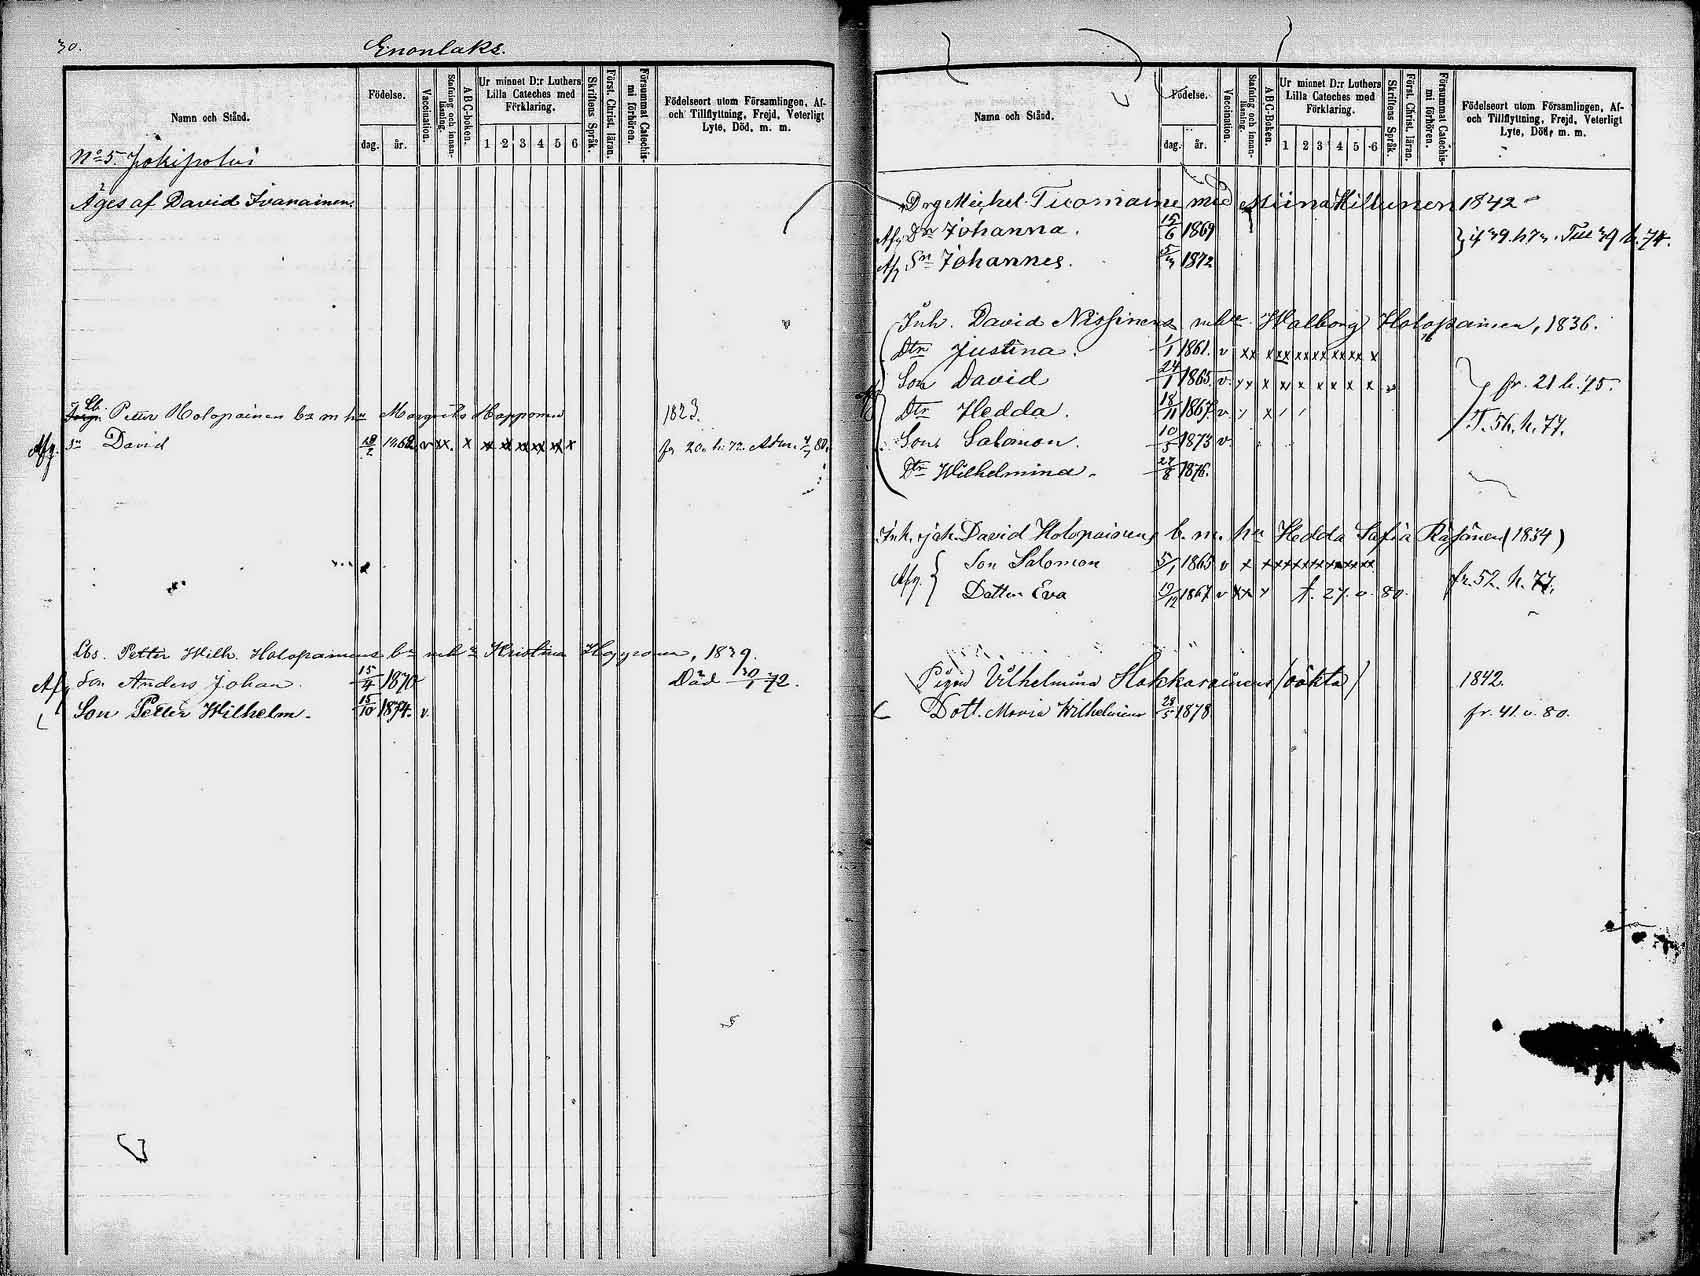 30.
Enonlaks.
Namn och Stånd.
Födelse.
dag.
år.
Vaccination.
Stafning och innanläsning.
ABC-boken.
Ur minnet D:r Luthers Lilla Cateches med Förklaring.
1 2 3 4 5 6
Skriftens Språk.
Först. Christ. läran.
Försummat Catechismi förhören.
Födelseort utom Församlingen, Af- och Tillflyttning, Frejd, Veterligt Lyte, Död, m. m.
No 5. Jokipolvi
Äges af David Ivanainen.
Lb. Petter Holopainen bs m hu Margreta Happonen 1823.
Afg. Sn David 1862 v xx. x xx xx xx xx xx x fr 20. h. 72.
Lbs. Petter Wilh. Holopainens bn mh Kristina 1839.
Afg Son Anders Johan. 15/4 1870 Död 30/1 72.
Son Petter Wilhelm. 15/10 1874. v.
Namn och Stånd.
Födelse.
dag.
år.
Vaccination.
Stafning och innanläsning.
ABC-Boken.
Ur minnet D:r Luthers Lilla Cateches med Förklaring.
1 2 3 4 5 6
Skriftens Språk.
Först. Christ. läran.
Försummat Catechismi förhören.
Födelseort utom Församlingen, Af- och Tillflyttning, Frejd, Veterligt Lyte, Död, m. m.
Drg Michel Tuomaine med Miina Hiltunen 1842
Afg Dr Johanna. 15/6 1869
Afg Sn Johannes. 1872
Inh. David Nissinens mhu Walborg Holopainen, 1836.
Dtr Justina. 1/1 1861. v xx x xx xx xx xx xx x
Afg Son David 24/1 1865. v. x x x x x x x x x fr. 21 h. 75.
Dtr Hedda. 18/11 1867. v x T. 56. h. 77.
Son Salomon. 10/5 1873 v
Dtr Wilhelmina. 27/8 1876.
Inh. David Holopainens b. m. hu Hedda Safia Räsänen (1834)
Afg. Son Salomon 5/1 1865 v x x xx xx xx xx xx fr. 52. h. 77.
Dotter Eva 19/12 1867 v xx x f. 27. v. 80.
Pigan Vilhelmina Hakkarainens (oäkta) 1842.
Dott. Maria Wilhelmina 28/5 1878. fr. 41. v. 80.